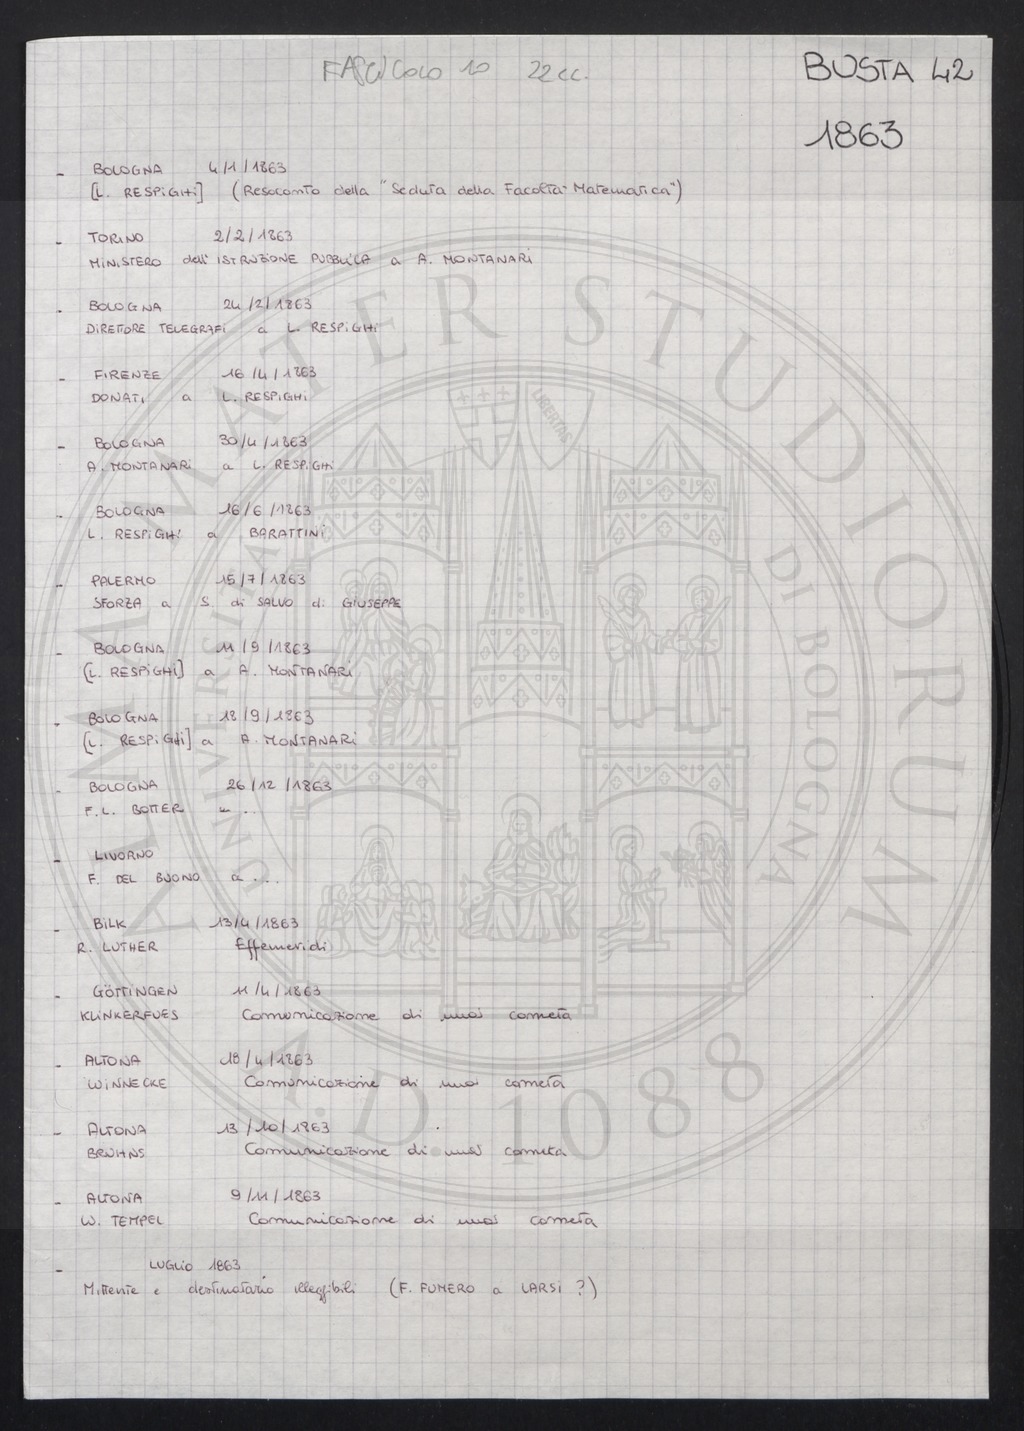 FASCICOLO 10 22 cc.
BUSTA 42
1863
- BOLOGNA 4/1/1863
[L. RESPIGHI] (Resoconto della "Seduta della Facoltà Matematica")
- TORINO 2/2/1863
MINISTERO dell' ISTRUZIONE PUBBLICA a A. MONTANARI
- BOLOGNA 24/2/1863
DIRETTORE TELEGRAFI a L. RESPIGHI
- FIRENZE 16/4/1863
DONATI a L. RESPIGHI
- BOLOGNA 30/4/1863
A. MONTANARI a L. RESPIGHI
- BOLOGNA 16/6/1863
L. RESPIGHI a BARATTINI
- PALERMO 15/7/1863
SFORZA a S. di SALVO di GIUSEPPE
- BOLOGNA 11/9/1863
[L. RESPIGHI] a A. MONTANARI
- BOLOGNA 18/9/1863
[L. RESPIGHI] a A. MONTANARI
- BOLOGNA 26/12/1863
F.L. BOTTER a ...
- LIVORNO
F. DEL BUONO a ...
- BILK 13/4/1863
R. LUTHER Effemeridi
- GÖTTINGEN 11/4/1863
KLINKERFUES Comunicazione di una cometa
- ALTONA 18/4/1863
WINNECKE Comunicazione di una cometa
- ALTONA 13/10/1863
BRUHNS Comunicazione di una cometa
- ALTONA 9/11/1863
W. TEMPEL Comunicazione di una cometa
- LUGLIO 1863
Mittente e destinatario illeggibili (F. FUMERO a LARSI ?)
ALMA MATER STUDIORUM
UNIVERSITÀ DI BOLOGNA
LIBERTAS
A.D. 1088